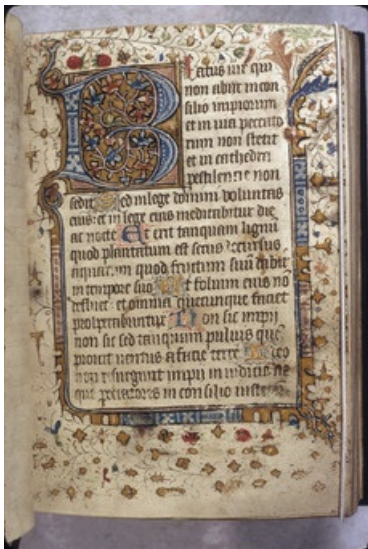 Beatus uir qui
non abiit in con
silio impiorum
et in uia peccato
rum non stetit
et in cathedra
pestilencie non
sedit Sed in lege domini voluntas
eius: et in lege eius meditabitur die
ac nocte Et erit tanquam lignū
quod plantatum est secus decursus
aquarum quod fructum suū dabit
in tempore suo Et folium eius nō
defluet: et omnia quecunque faciet
prosperabuntur Non sic impii
non sic sed tanquam puluis quē
proicit uentus a facie terre Ideo
non resurgunt impii in iudicio ne
que peccatores in consilio